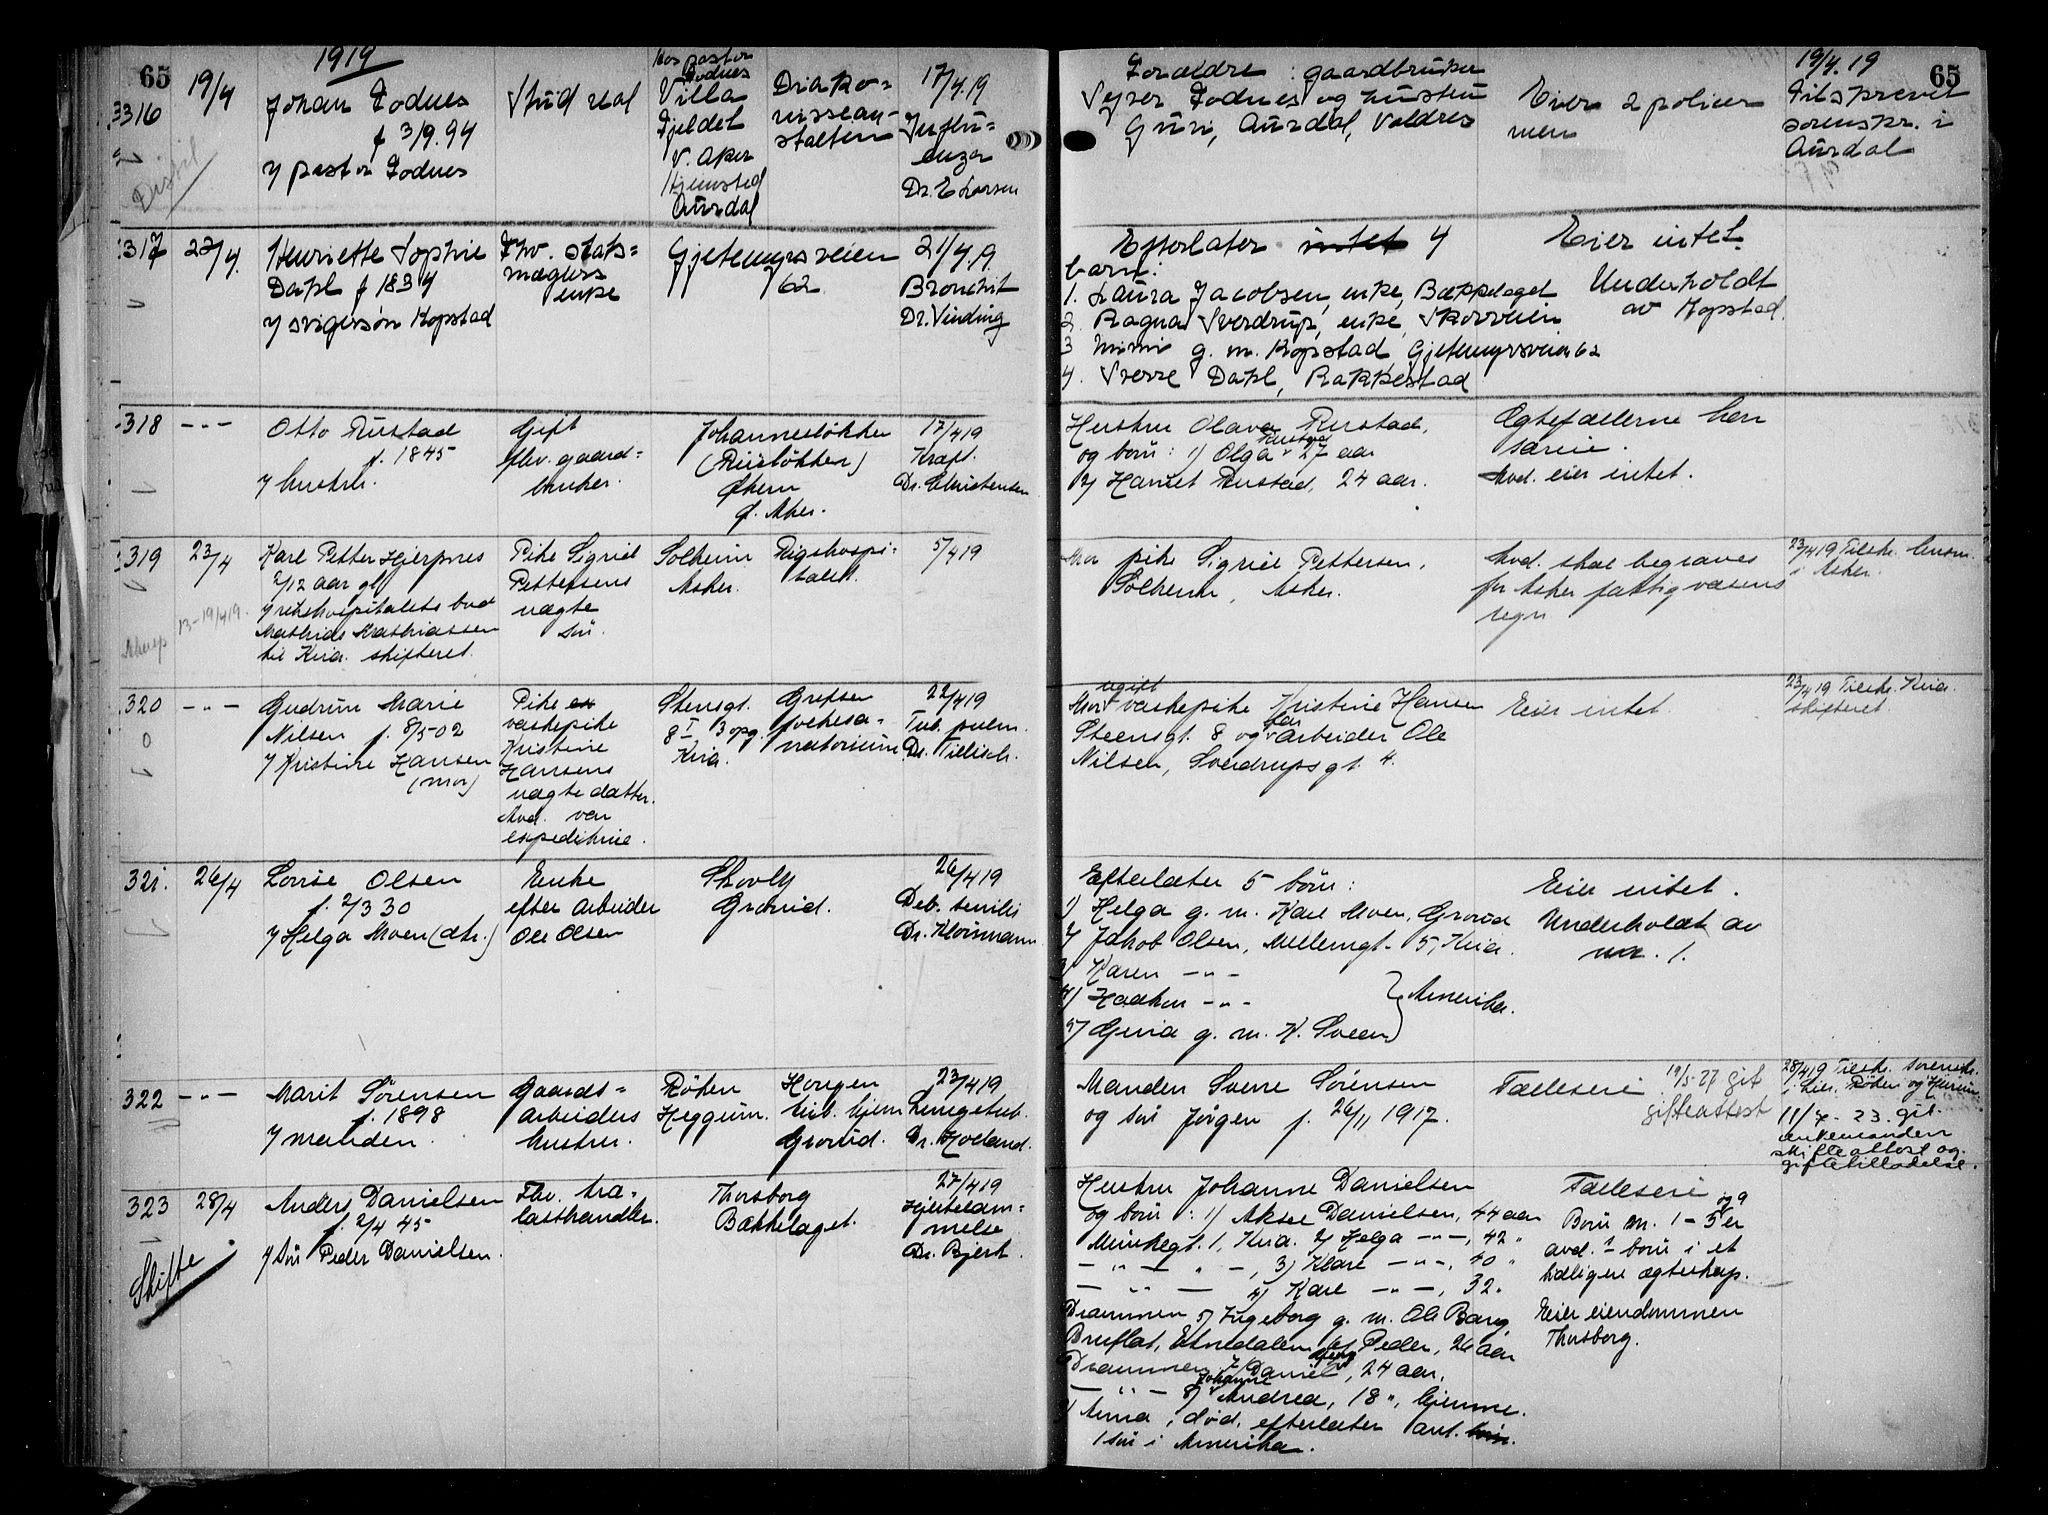 65
1919
3316
19/4
Johan Fodnes
f 3/9.94
v/ pastor Fodnes
Stud real
Hos pastor
Fodnes
Villa
Fjeldet
V. Aker
Hjemsted
Aurdal
Diako=
nissean=
stalten
17/4.19
Influ=
enza
Dr. E Larsen
Forældre : gaardbruker
Fodnes og hustru
Guri, Aurdal, Valdres
Eier 2 poliser
men
19/4.19
65
Tilskrevet
sorenskr. i
Aurdal
317
23/4.
Henriette Sophie
Dahl f 1834
v/ svigersøn Kopstad
Fhv. stats=
mæglers
enke
Gjetemyrsveien
62
21/4.19.
Bronchit
Dr. Vinding
Efterlater intet 4
barn:
1. Laura Jacobsen, enke, Bækkelaget
2. Ragna Sverdrup, enke, Skovveien
3 Mimi g. m. Kopstad Gjetemyrsveien 62
4. Sverre Dahl, Rakkestad
Eier intet.
Underholdt
av Kopstad.
318
- " -
Otto Rustad
f. 1845
v/ hustru.
Gift
fhv. gaard=
bruker.
Johannesløkken
(Riisløkken)
Økern
Ø. Aker.
17/4 19
Kræft.
Dr. Christensen
Hustru Olava Rustad,
og børn: 1) Olga Rustad 27 aar
2) Harriet Rustad, 24 aar.
Ægtefællerne hen
særeie.
Avd. eier intet.
319
23/4
Karl Petter Hjerpnes
2/12 aar gl.
v/ rikshospitalets bud
Mathias Mathiassen
til Kria. skifteret.
13-19/4 19.
Pike Sigrid
Pettersens
uægte
søn.
Solheim
Asker.
Rigshospi=
talet.
5/4 19
Mor pike Sigrid Pettersen,
Solheim, Asker.
Avd. skal begraves
for Asker fattigvæsens
regn
23/4 19 Tilskr. lensm.
i Asker.
320
- " -
Gudrun Marie
Nilsen f. 8/5-02
v/ Kristine Hansen
(mor)
Pike
vaskepike
Kristine
Hansens
uægte datter.
Avd. var
expeditrice.
Stensgt.
8 I 3 opg.
Kria.
Grefsen
folkesa=
natorium
22/4 19
Tub. pulm.
Dr. Tillisch.
Mor ugift vaskepike Kristine Hansen
Steensgt. 8 og far arbeider Ole
Nilsen, Sverdrupsgt. 4.
Eier intet.
23/4 19 Tilskr. Kria.
skifteret.
321.
26/4
Lovise Olsen
f. 2/3 30
v/ Helga Moen (dtr.)
Enke
efter arbeider
Ole Olsen
Skovly
Grorud.
26/4 19
Deb. senilis
Dr. Kloumann
Efterlater 5 børn:
1) Helga g. m. Karl Moen, Grorud
2) Jakob Olsen, Møllergt. 5, Kria.
3) Karen - " -
4) Haakon - " -
Amerika.
5) Gina g. m. K. Sveen
Eier intet.
Underholdt av
nr. 1.
322
- " -
Marit Sørensen
f. 1898
v/ manden.
Gaards=
arbeiders
hustru.
Røken
Heggum.
Horgen
tub. hjem
Grorud.
23/4 19
Lungetub.
Dr. Hoeland.
Manden Sverre Sørensen
og søn Jørgen f. 26/11 1917.
Fælleseie
19/5-27 git
gifteattest
28/4 19 Tilskr. sorenskr.
i Lier, Røken og Hurum
11/7 - 23. git.
enkemanden
skifteattest og
giftetilladelse.
323
28/4
Skifte
Anders Danielsen
f. 2/4 45
v/ søn Peder Danielsen.
Fhv. tra=
lasthandler.
Thorsborg
Bækkelaget.
27/4 19
Hjertelam=
melse
Dr. Bjert.
Hustru Johanne Danielsen
og børn: 1) Aksel Danielsen, 44 aar
Munkegt. 1, Kria. 2) Helga - " -, 42 "
- " - " -, 3) Klare - " -, 40 "
- " - 4) Karl - " -, 32 "
Drammen 5) Ingeborg g. m. Ole Bang
Bruflat, Etnedalen 6) Peder, 26 aar
Drammen 7) Daniel, 24 aar.
- " - 8) Johanne Andrea, 18 ", hjemme.
9) Anna, død, efterlater ant.
1 søn i Amerika.
Fælleseie
og 9
Børn nr. 1 - 5 er
avd.s børn i et
tidligere ægteskap.
Eier eiendommen
Thorsborg.